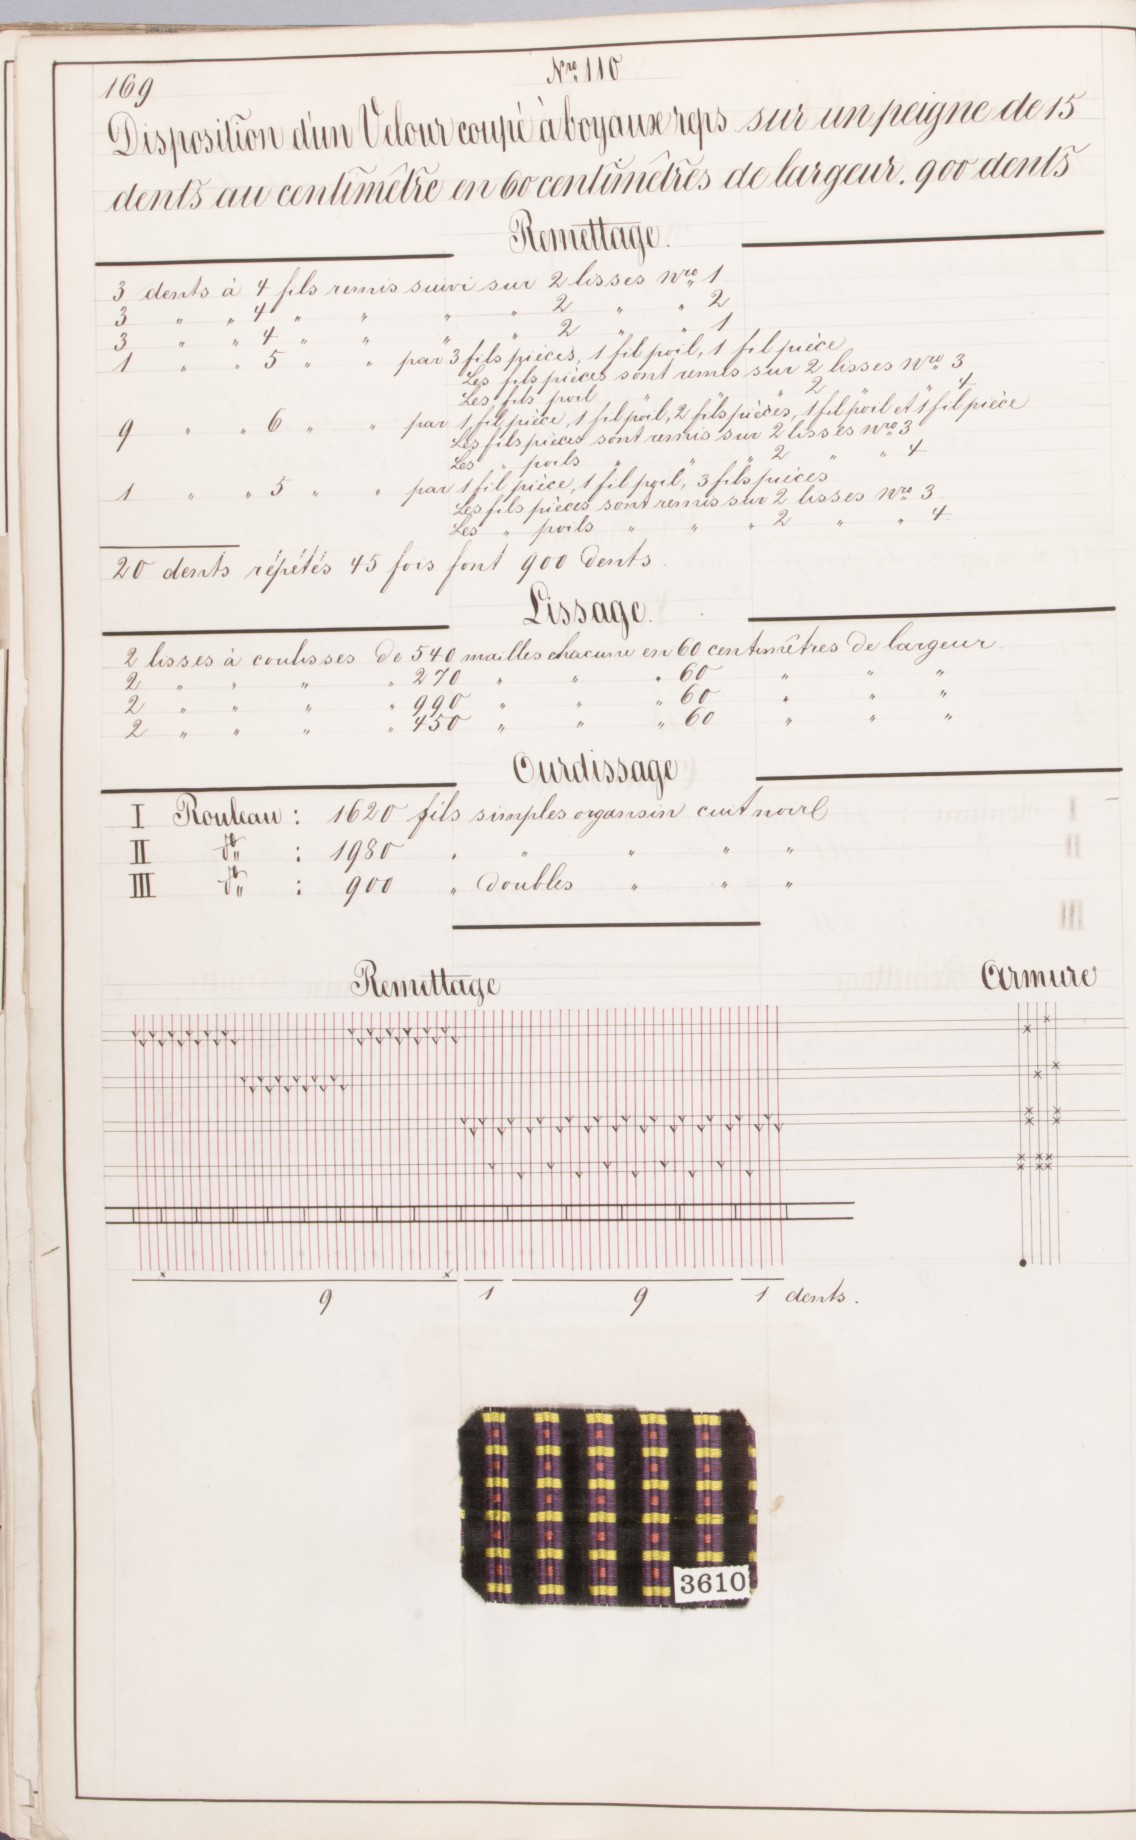 169
Nro 110
Disposition d'un Velour coupé à boyaux reps sur un peigne de 15
dents au centimêtre en 60 centimêtres de largeur. 900 dents
Remettage.
3 dents à 4 fils remis suivi sur 2 lisses Nro 1
3 " " 4 " " " " 2 " " 2
3 " " 4 " " " " 2 " " 1
1 " " 5 " " par 3 fils pièces, 1 fil poil, 1 fil pièce
Les fils pièces sont remis sur 2 lisses Nro 3
Les fils poil " " " 2 " " 4
9 " " 6 " " par 1 fil pièce, 1 fil poil, 2 fils pièces, 1 fil poil et 1 fil pièce
Les fils pièces sont remis sur 2 lisses Nro 3
Les " poils " " " 2 " " 4
1 " " 5 " " par 1 fil pièce, 1 fil poil, 3 fils pièces
Les fils pièces sont remis sur 2 lisses Nro 3
Les " poils " " " 2 " " 4
20 dents répétés 45 fois font 900 dents.
Lissage.
2 lisses à coulisses de 540 mailles chacune en 60 centimêtres de largeur
2 " " " " 270 " " " 60 " " "
2 " " " " 990 " " " 60 " " "
2 " " " " 450 " " " 60 " " "
Ourdissage
I Rouleau : 1620 fils simples organsin cuit noire
II do " : 1980 " " " " "
III do " : 900 " doubles " " "
Remettage
Armure
9 1 9 1 dents.
3610